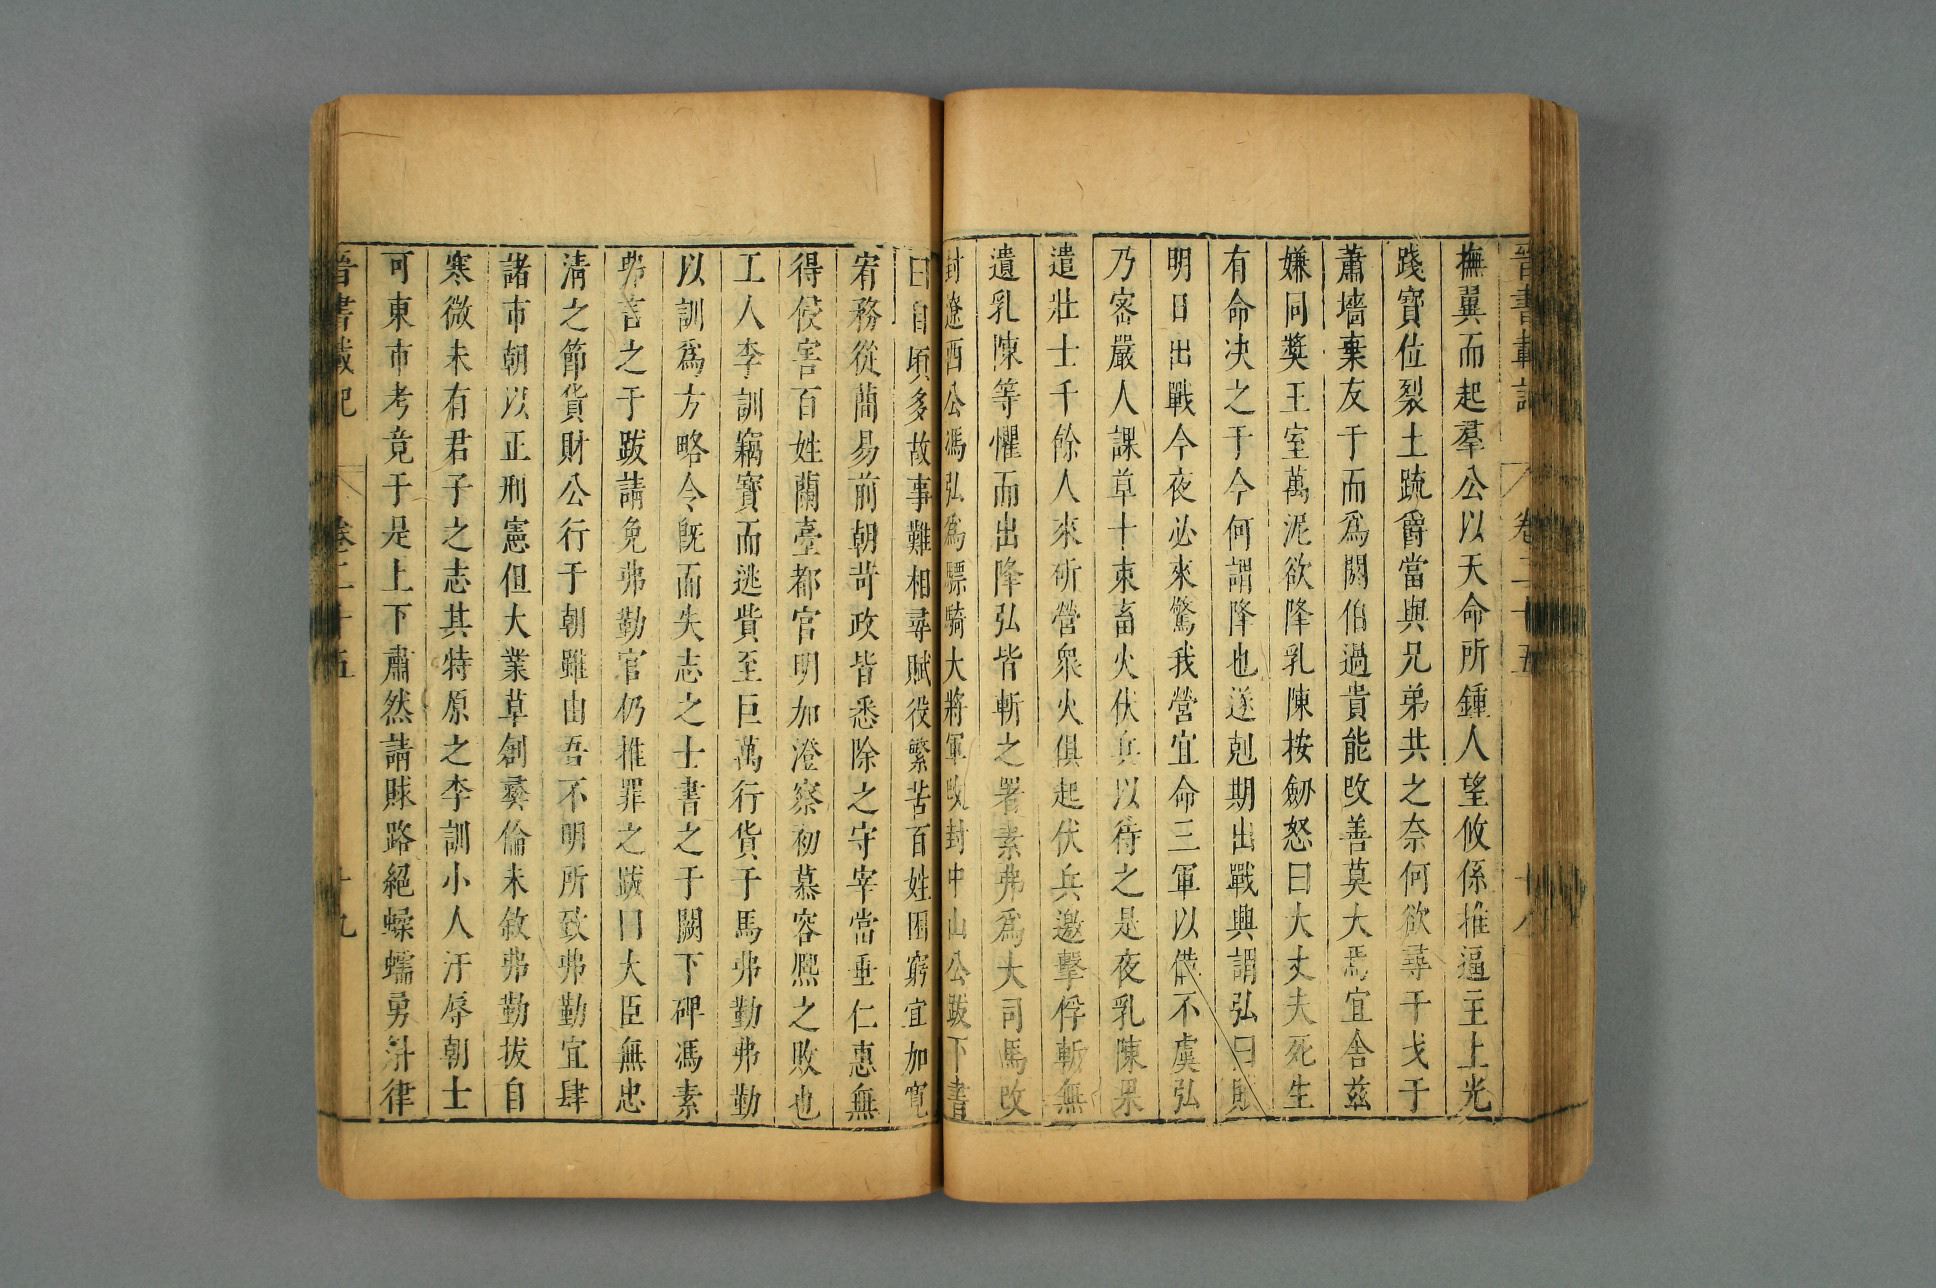 晉書載記 卷二十五 十八
撫翼而起羣公以天命所鍾人望攸係推逼主上光
踐寳位裂土䟽爵當與兄弟共之奈何欲尋干戈于
蕭墻棄友于而爲閼伯過貴能改善莫大焉宜舍兹
嫌同奬王室萬泥欲降乳陳按劒怒曰大丈夫死生
有命决之于今何謂降也遂剋期出戰興謂弘曰賊
明日出戰今夜必來驚我營宜命三軍以備不虞弘
乃宻嚴人課草十束畜火伏兵以待之是夜乳陳果
遣壯士千餘人來斫營衆火俱起伏兵邀擊俘斬無
遺乳陳等懼而出降弘皆斬之署素弗爲大司馬改
封遼西公馮弘爲驃騎大將軍改封中山公跋下書
曰自頃多故事難相尋賦役繁苦百姓困窮宜加寛
宥務從簡易前朝苛政皆悉除之守宰當垂仁惠無
得侵害百姓蘭臺都官明加澄察初慕容熈之敗也
工人李訓竊寳而逃貲至巨萬行貨于馬弗勤弗勤
以訓爲方略令旣而失志之士書之于闕下碑馮素
弗言之于跋請免弗勤官仍推罪之跋曰大臣無忠
清之節貨財公行于朝雖由吾不明所致弗勤宜肆
諸市朝以正刑憲但大業草創彛倫未敘弗勤拔自
寒微未有君子之志其特原之李訓小人汙辱朝士
可東市考竟于是上下肅然請賕路絕蠑蠕勇斛律
晉書載記 卷二十五 十九